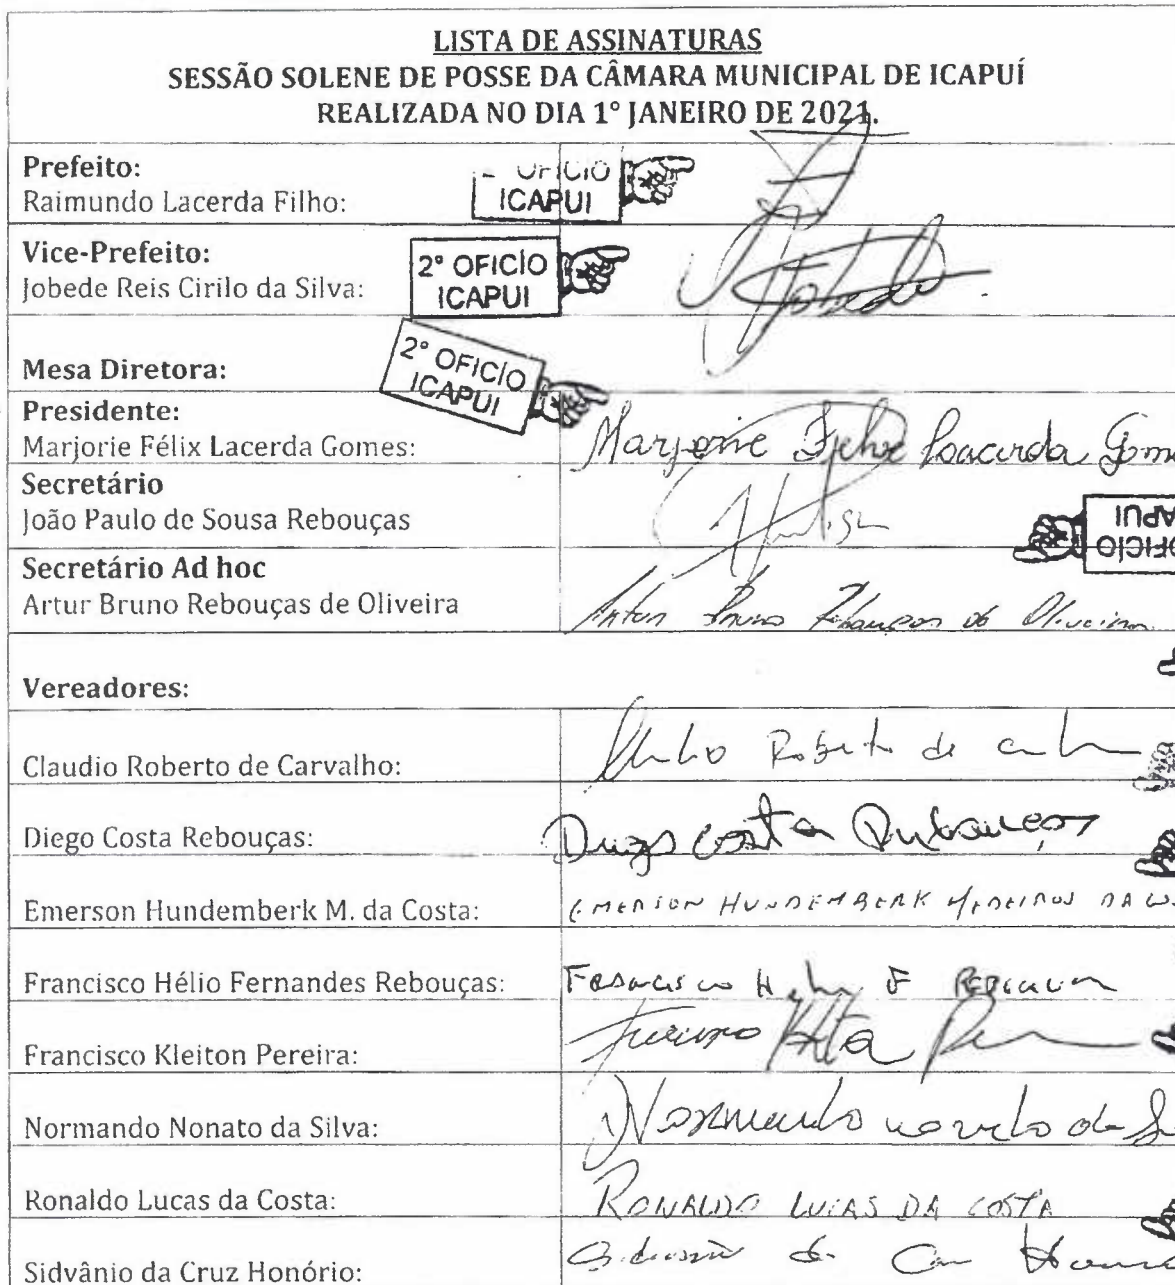 LISTA DE ASSINATURAS
SESSÃO SOLENE DE POSSE DA CÂMARA MUNICIPAL DE ICAPUÍ
REALIZADA NO DIA 1° JANEIRO DE 2021.
Prefeito:
Raimundo Lacerda Filho:
OFICIO
ICAPUI
Vice-Prefeito:
Jobede Reis Cirilo da Silva:
2° OFICÍO
ICAPUI
Jobede
Mesa Diretora:
2° OFICÍO
ICAPUI
Presidente:
Marjorie Félix Lacerda Gomes:
Marjorie Félix Lacerda Gome
Secretário
João Paulo de Sousa Rebouças
Secretário Ad hoc
Artur Bruno Rebouças de Oliveira
Artur Bruno Rebouças de Oliveira
Vereadores:
Claudio Roberto de Carvalho:
Roberto de
Diego Costa Rebouças:
Diego Costa Rebouças
Emerson Hundemberk M. da Costa:
EMERSON HUNDEMBERK MEDEIROS DA
Francisco Hélio Fernandes Rebouças:
Francisco F
Francisco Kleiton Pereira:
Normando Nonato da Silva:
Normando Nonato da
Ronaldo Lucas da Costa:
RONALDO LUCAS DA COSTA
Sidvânio da Cruz Honório: